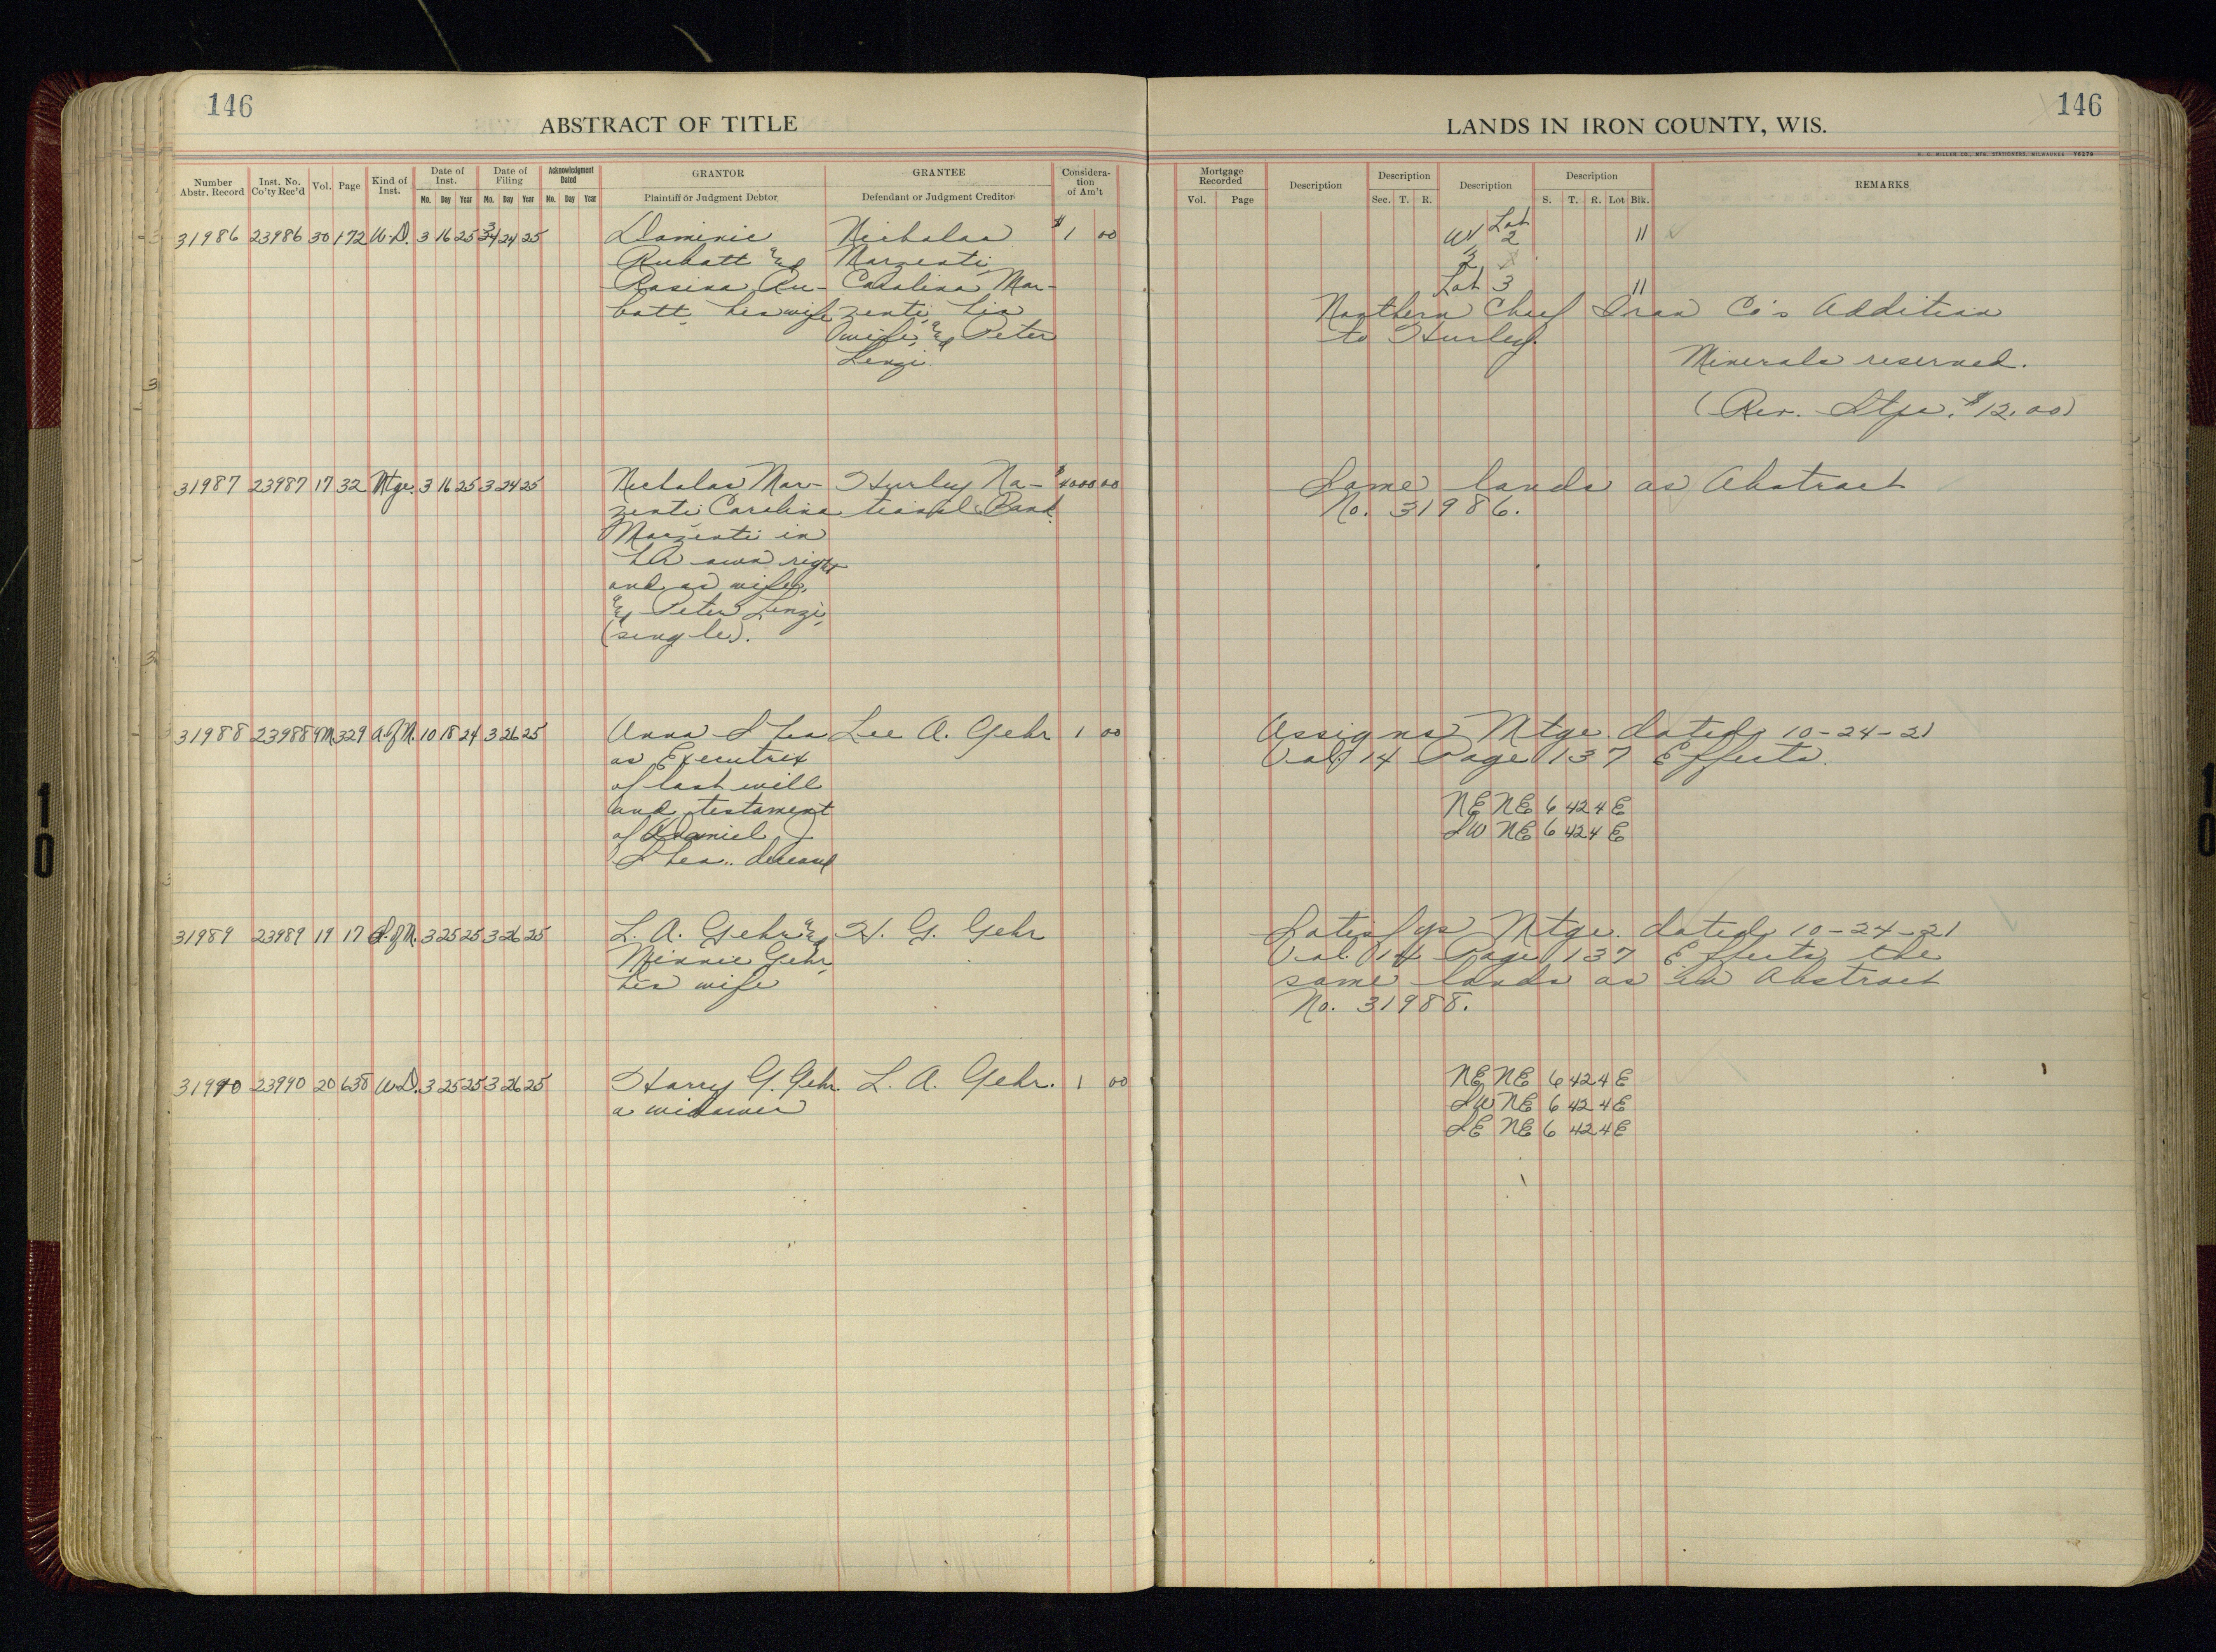 146
ABSTRACT OF TITLE
LANDS IN IRON COUNTY, WIS.
146
H. C. MILLER CO., MFG. STATIONERS, MILWAUKEE
Number Abstr. Record | Inst. No. Co'ty Rec'd | Vol. | Page | Kind of Inst. | Date of Inst. Mo. Day Year | Date of Filing Mo. Day Year | Acknowledgment Dated Mo. Day Year | GRANTOR Plaintiff or Judgment Debtor | GRANTEE Defendant or Judgment Creditor | Consideration of Am't | Mortgage Recorded Vol. Page | Description | Description Sec. T. R. | Description | Description S. T. R. Lot Blk. | REMARKS
31986 23986 30 172 W.D. 3 16 25 3 24 25 Dominic Nicholas $1 00 W Lot 2 11
Rubatt & Marzenti, 2
Rosina Ru- Carolina Mar- Lot 3 11
batt, his wife zenti, his Northern Chief Iron Co's Addition
wife, & Peter to Hurley.
Lenzi Minerals reserved.
(Rev. Stps. $12.00)
31987 23987 17 32 Mtge. 3 16 25 3 24 25 Nicholas Mar- Hurley Na- $ 00 Same lands as Abstract
zenti, Carolina tional Bank No. 31986.
Marzenti in
her own right
and as wife,
& Peter Lenzi,
(single).
31988 23988 329 A. of M. 10 18 24 3 26 25 Anna Shea Lee A. Gehr 1 00 Assigns Mtge. dated 10-24-21
as Executrix Vol. 14 Page 137 Effects.
of last will
and testament NE NE 6 42 4E
of Daniel J. SW NE 6 42 4E
Shea, deceased
31989 23989 19 17 S. of M. 3 25 25 3 26 25 L. A. Gehr & H. G. Gehr Satisfys Mtge. dated 10-24-21
Minnie Gehr, Vol. 14 Page 137 Effects the
his wife same lands as in Abstract
No. 31988.
31990 23990 20 638 W.D. 3 25 25 3 26 25 Harry G. Gehr. L. A. Gehr. 1 00 NE NE 6 42 4E
a widower SW NE 6 42 4E
SE NE 6 42 4E
10
10